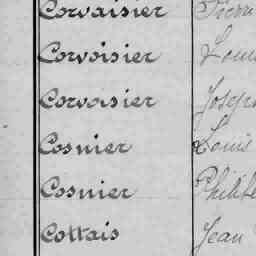 Corvaisier Pierre
Corvoisier Loui
Corvoisier Joseph
Cosnier Louis
Cosnier Philibe
Cottais Jean